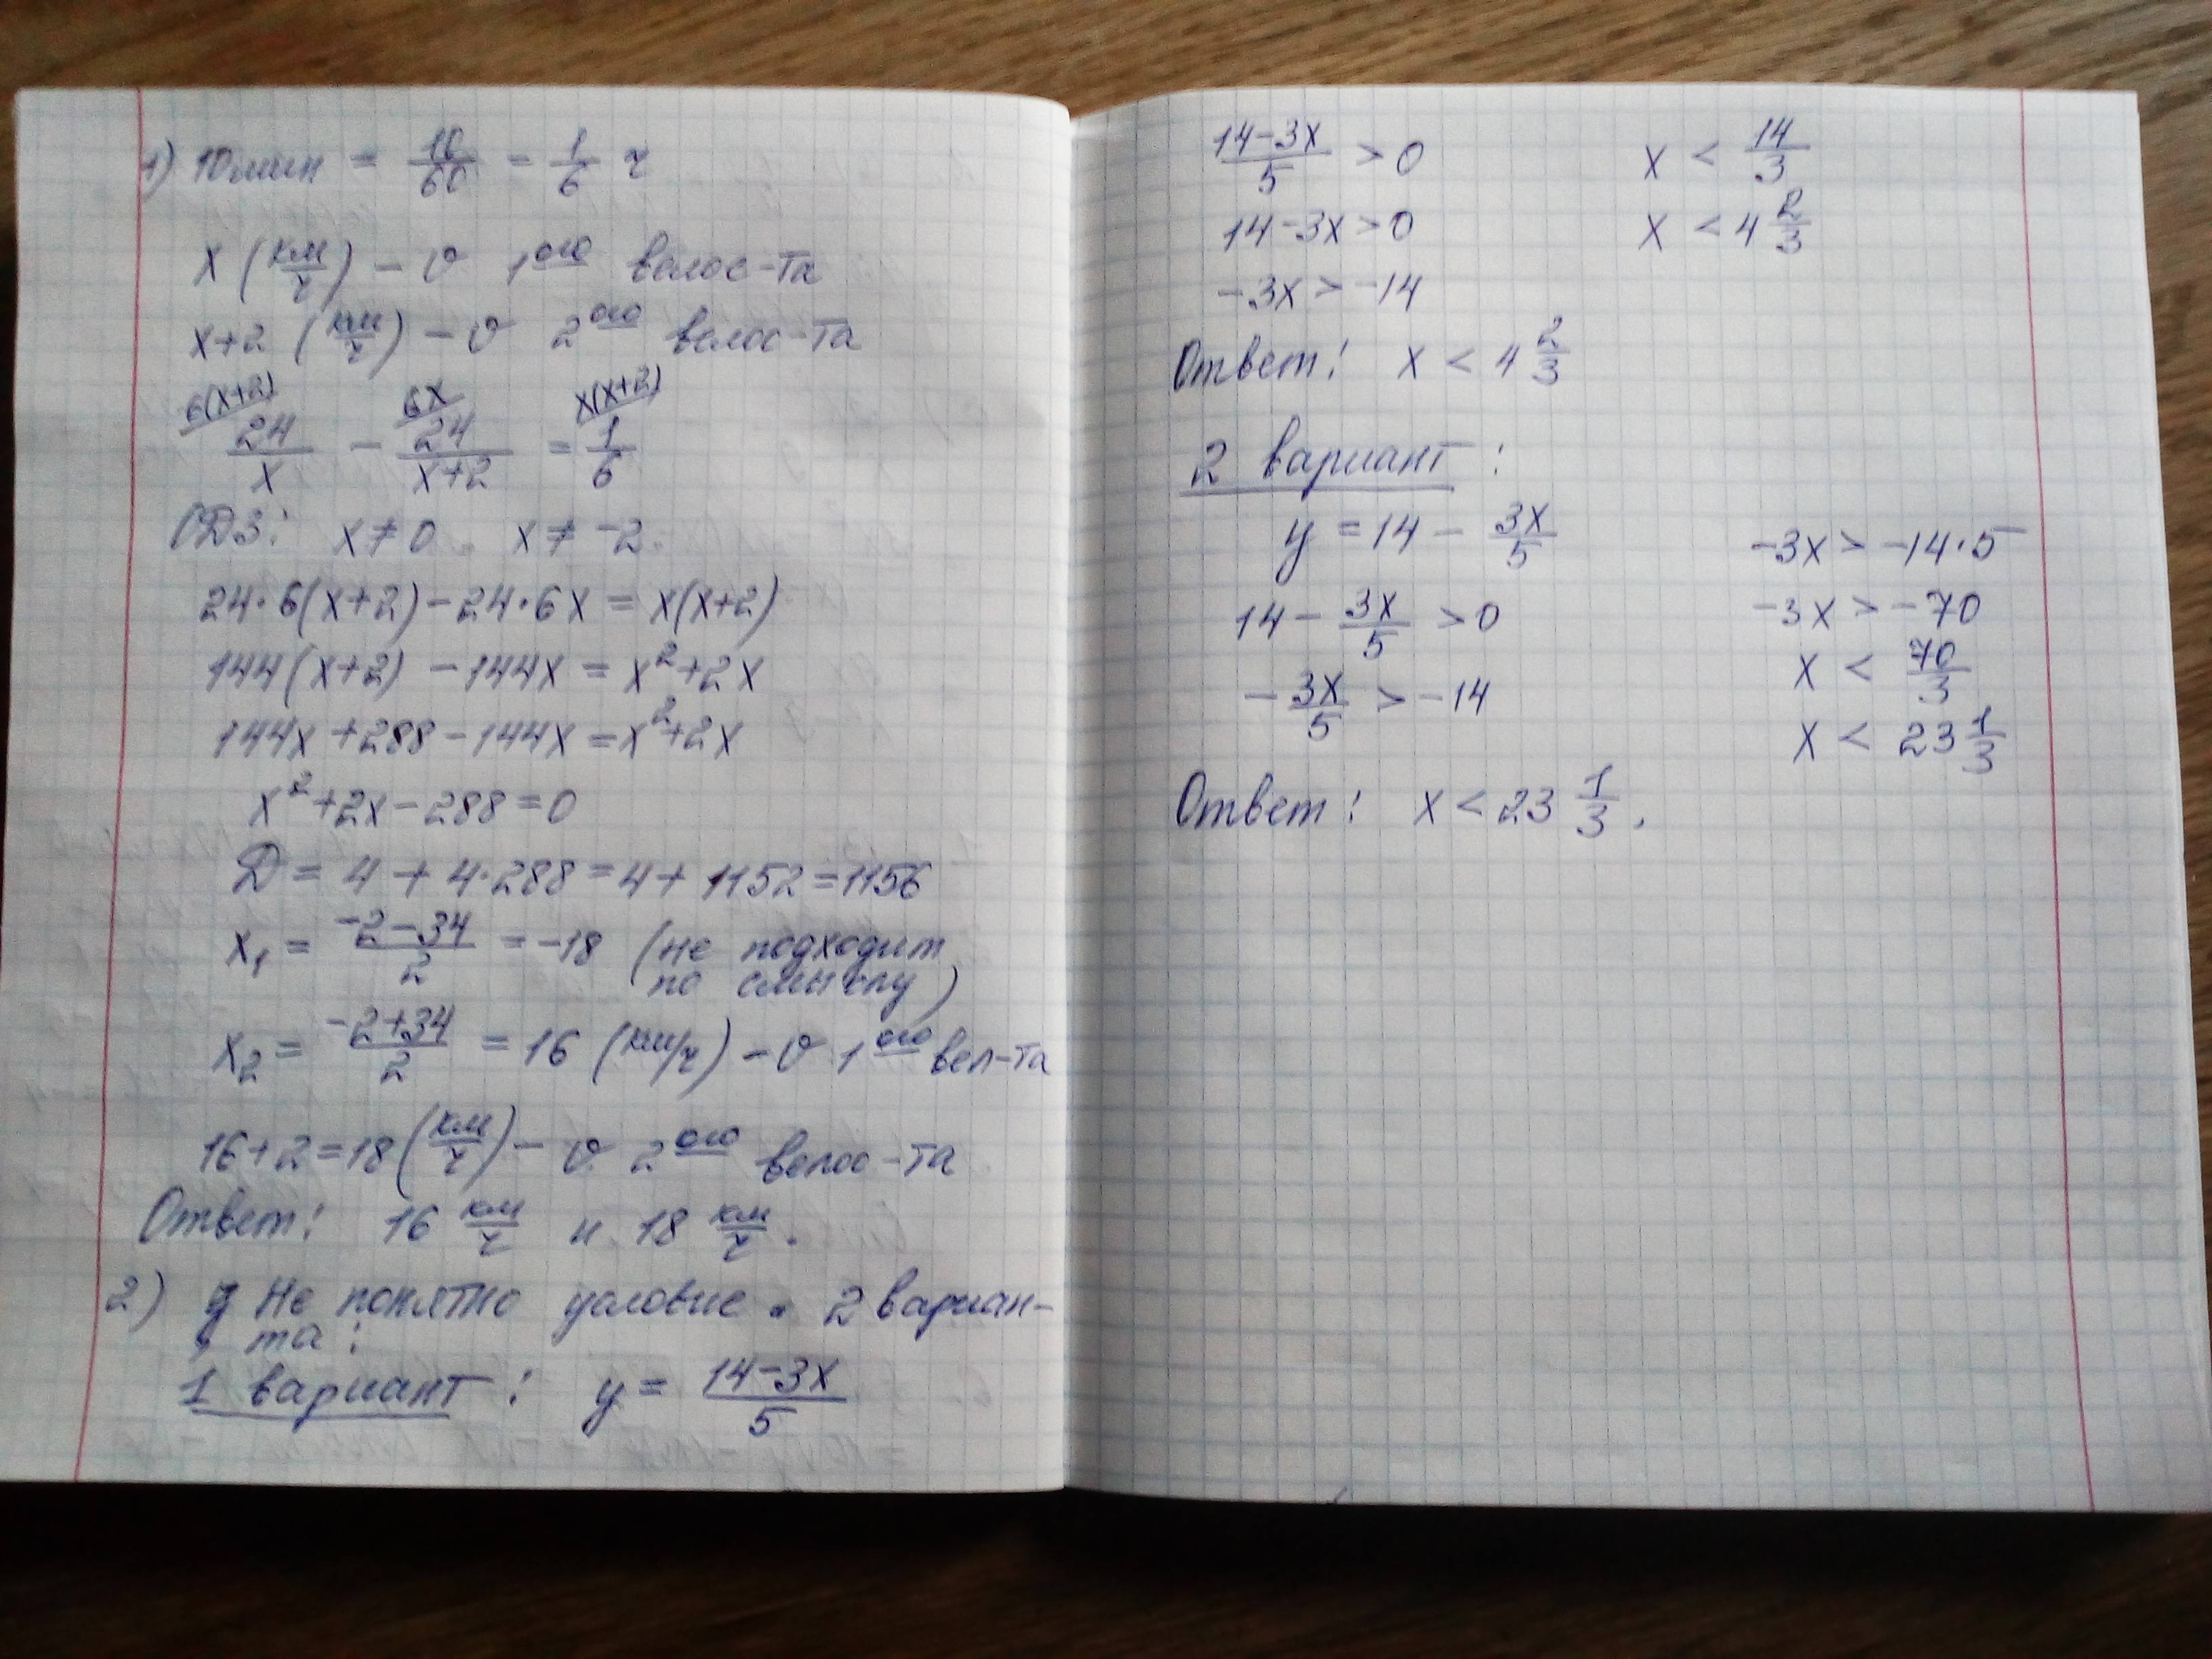 1) 10 мин = 10/60 = 1/6 ч
x (км/ч) – v 1ого велос-та
x+2 (км/ч) – v 2ого велос-та
6(x+2)/ 24/x – 6x/ 24/(x+2) = x(x+2)/ 1/6
ОДЗ: x ≠ 0 x ≠ -2
24·6(x+2) – 24·6x = x(x+2)
144(x+2) – 144x = x²+2x
144x + 288 – 144x = x²+2x
x²+2x – 288 = 0
D = 4 + 4·288 = 4 + 1152 = 1156
x₁ = (-2-34)/2 = -18 (не подходит
по смыслу)
x₂ = (-2+34)/2 = 16 (км/ч) – v 1ого вел-та
16+2 = 18 (км/ч) – v 2ого велос-та
Ответ: 16 км/ч и 18 км/ч.
2) Не понятно условие. 2 вариан-
та:
1 вариант: y = (14-3x)/5
(14-3x)/5 > 0
14-3x > 0
-3x > -14
x < 14/3
x < 4 2/3
Ответ: x < 4 2/3
2 вариант:
y = 14 – 3x/5
14 – 3x/5 > 0
– 3x/5 > -14
-3x > -14·5
-3x > -70
x < 70/3
x < 23 1/3
Ответ: x < 23 1/3.